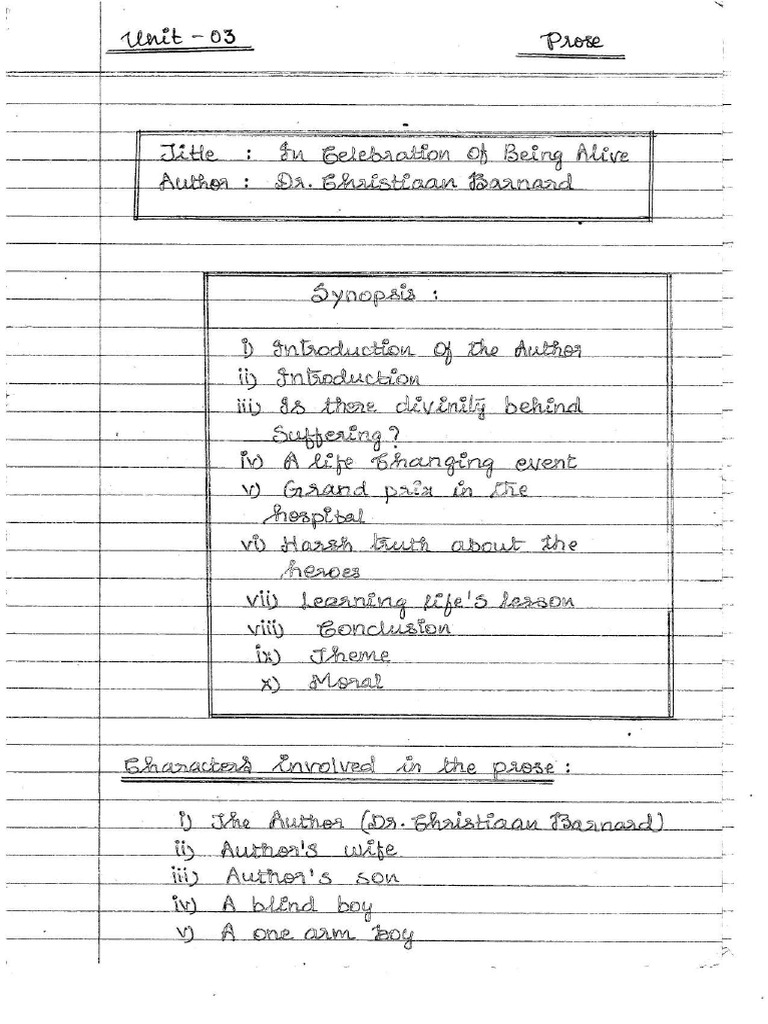 Unit - 03 Prose
Title : In Celebration Of Being Alive
Author : Dr. Christiaan Barnard
Synopsis :
i) Introduction Of the Author
ii) Introduction
iii) Is there divinity behind
Suffering?
iv) A life Changing event
v) Grand prix in the
hospital
vi) Harsh truth about the
heroes
vii) Learning life's lesson
viii) Conclusion
ix) Theme
x) Moral
Characters involved in the prose :
i) The Author (Dr. Christiaan Barnard)
ii) Author's wife
iii) Author's son
iv) A blind boy
v) A one arm Boy